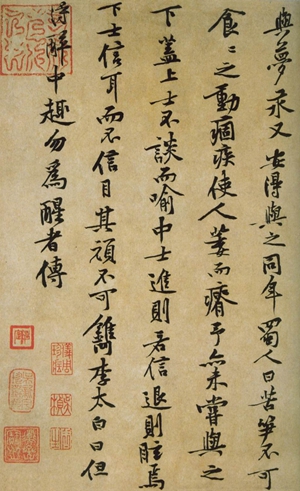 與夢汞又安得與之同年蜀人曰苦笋不可
食〻之動痼疾使人萎而瘠予亦未嘗與之
下蓋上士不談而喻中士進則若信退則眩焉
下士信耳而不信目其頑不可鐫李太白曰但
得醉中趣勿為醒者傳